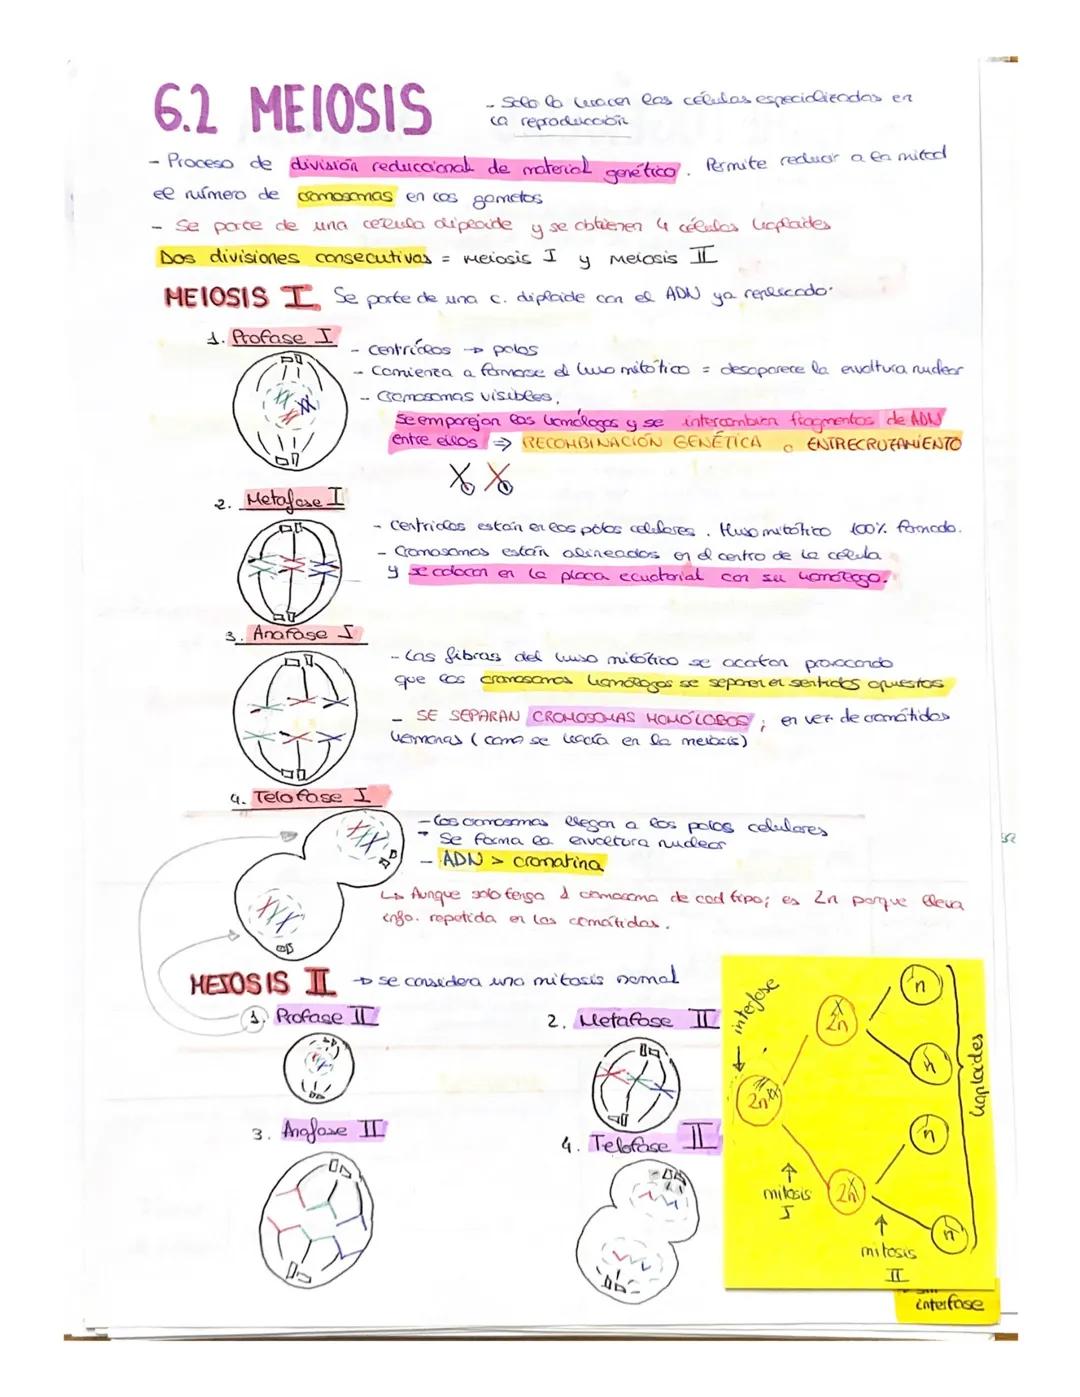 6.2 MEIOSIS
- Solo lo hacen las células especializadas en
la reproducción
- Proceso de división reduccional de material genético. Permite reducir a la mitad
el número de cromosomas en los gametos
- Se parte de una célula diploide y se obtienen 4 células haploides
Dos divisiones consecutivas = Meiosis I y Meiosis II
MEIOSIS I Se parte de una c. diploide con el ADN ya replicado.
1. Profase I
- Centríolos → polos
- Comienza a formarse el huso mitótico = desaparece la envoltura nuclear
- Cromosomas visibles,
se emparejan los homólogos y se intercambian fragmentos de ADN
entre ellos ⇒ RECOMBINACIÓN GENÉTICA o ENTRECRUZAMIENTO
2. Metafase I
- Centriolos están en los polos celulares. Huso mitótico 100% formado.
- Cromosomas están alineados en el centro de la célula
y se colocan en la placa ecuatorial con su homólogo.
3. Anafase I
- Las fibras del huso mitótico se acortan provocando
que los cromosomas homólogos se separen en sentidos opuestos
- SE SEPARAN CROMOSOMAS HOMÓLOGOS; en vez de cromátidas
hermanas (como se hacía en la meiosis)
4. Telofase I
- Los cromosomas llegan a los polos celulares
- Se forma la envoltura nuclear
- ADN > cromatina
↳ Aunque solo tenga 1 cromosoma de cad tipo; es 2n porque lleva
info. repetida en las cromátidas.
MEIOSIS II → se considera una mitosis normal
1. Profase II
2. Metafase II
3. Anafase II
4. Telofase II
← interfase
2n
2n
2n
n
n
n
n
haploides
↑
mitosis
I
↑
mitosis
II
sin
interfase